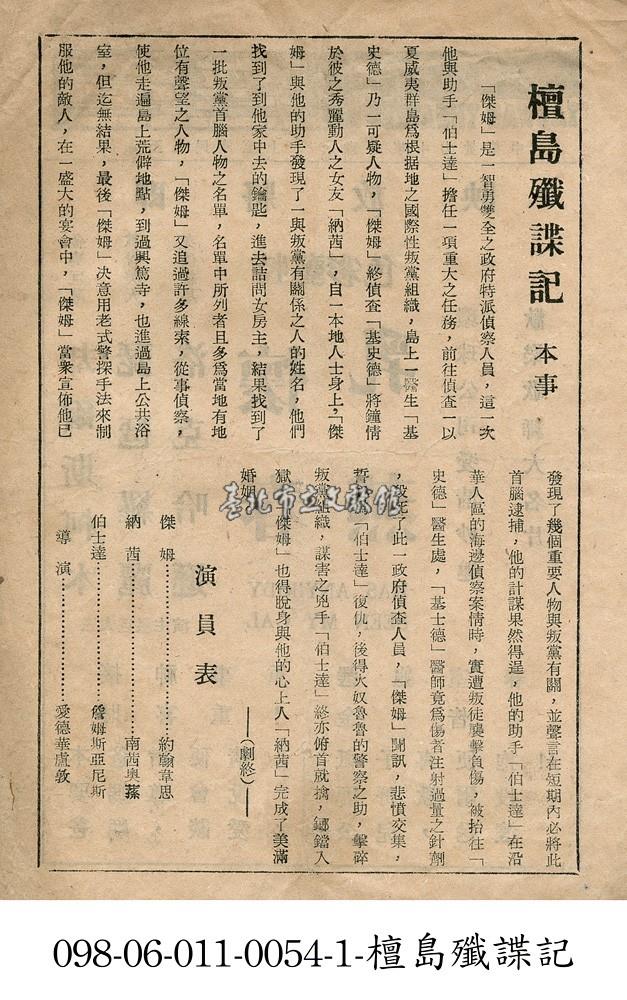 檀島殲諜記 本事
「傑姆」是一智勇雙全之政府特派偵察人員，這一次
他與助手「伯士達」擔任一項重大之任務，前往偵查一以
夏威夷群島爲根据地之國際性叛黨組織，島上一醫生「基
史德」乃一可疑人物，「傑姆」終偵查「基史德」將鐘情
於彼之秀麗動人之女友「納茜」，自一本地人士身上，「傑
姆」與他的助手發現了一與叛黨有關係之人的姓名，他們
找到了到他家中去的鑰匙，進去詰問女房主，結果找到了
一批叛黨首腦人物之名單，名單中所列者且多爲當地有地
位有聲望之人物，「傑姆」又追過許多線索，從事偵察，
使他走遍島上荒僻地點，到過興篤寺，也進過島上公共浴
室，但迄無結果，最後「傑姆」决意用老式警探手法來制
服他的敵人，在一盛大的宴會中，「傑姆」當衆宣佈他已
發現了幾個重要人物與叛黨有關，並聲言在短期內必將此
首腦逮捕，他的計謀果然得逞，他的助手「伯士達」在沿
華人區的海邊偵察案情時，實遭叛徒襲擊負傷，被抬往「
史德」醫生處，「基士德」醫師竟爲傷者注射過量之針劑
，殺死了此一政府偵查人員，「傑姆」聞訊，悲憤交集，
誓爲「伯士達」復仇，後得火奴魯魯的警察之助，擊碎
叛黨組織，謀害之兇手「伯士達」終亦俯首就擒，鎯鐺入
獄，「傑姆」也得脫身與他的心上人「納茜」完成了美滿
婚姻。 ——（劇終）——
演員表
傑姆………………約翰韋恩
納茜………………南茜奧蓀
伯士達………………詹姆斯亞尼斯
導演………………愛德華盧敦
臺北市立文獻館
098-06-011-0054-1-檀島殲諜記